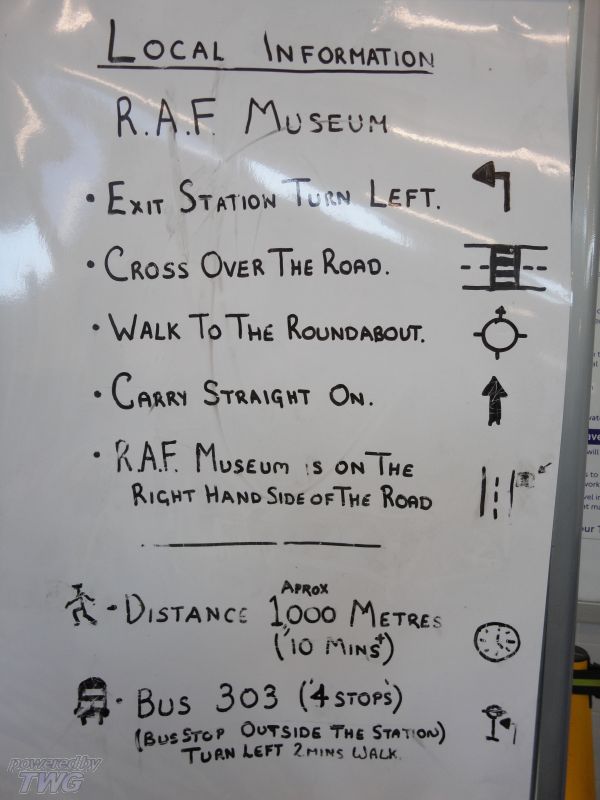 LOCAL INFORMATION
R.A.F. MUSEUM
• EXIT STATION TURN LEFT.
• CROSS OVER THE ROAD.
• WALK TO THE ROUNDABOUT.
• CARRY STRAIGHT ON.
• R.A.F. MUSEUM IS ON THE
RIGHT HAND SIDE OF THE ROAD
APROX
• DISTANCE 1,000 METRES
('10 MINS+')
• BUS 303 ('4 STOPS')
(BUS STOP OUTSIDE THE STATION)
TURN LEFT 2 MINS WALK.
powered by
TWG